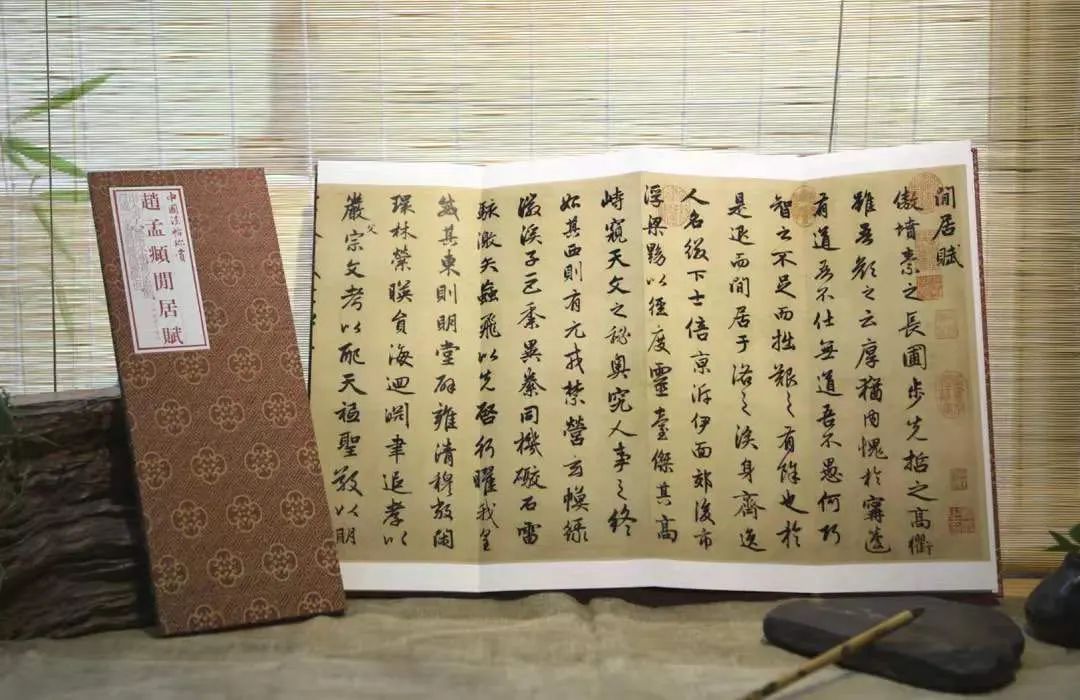 趙孟頫閒居賦
閒居賦
傲墳素之長圃步先哲之高衢
雖吾顏之云厚猶內愧於甯蘧
有道吾不仕無道吾不愚何巧
智之不足而拙艱之有餘也於
是退而閒居于洛之涘身齊逸
人名綴下士倍京泝伊面郊後市
浮梁黝以徑度靈臺傑其高
峙窺天文之秘奧究人事之終
始其西則有元戎禁營玄幙綠
徽溪子巨黍異絭同機礮石雷
駭激矢蝱飛以先啓行曜我皇
威其東則明堂辟雍清穆敞閑
環林縈暎圓海迴淵聿追孝以
嚴父宗文考以配天祗聖敬以明